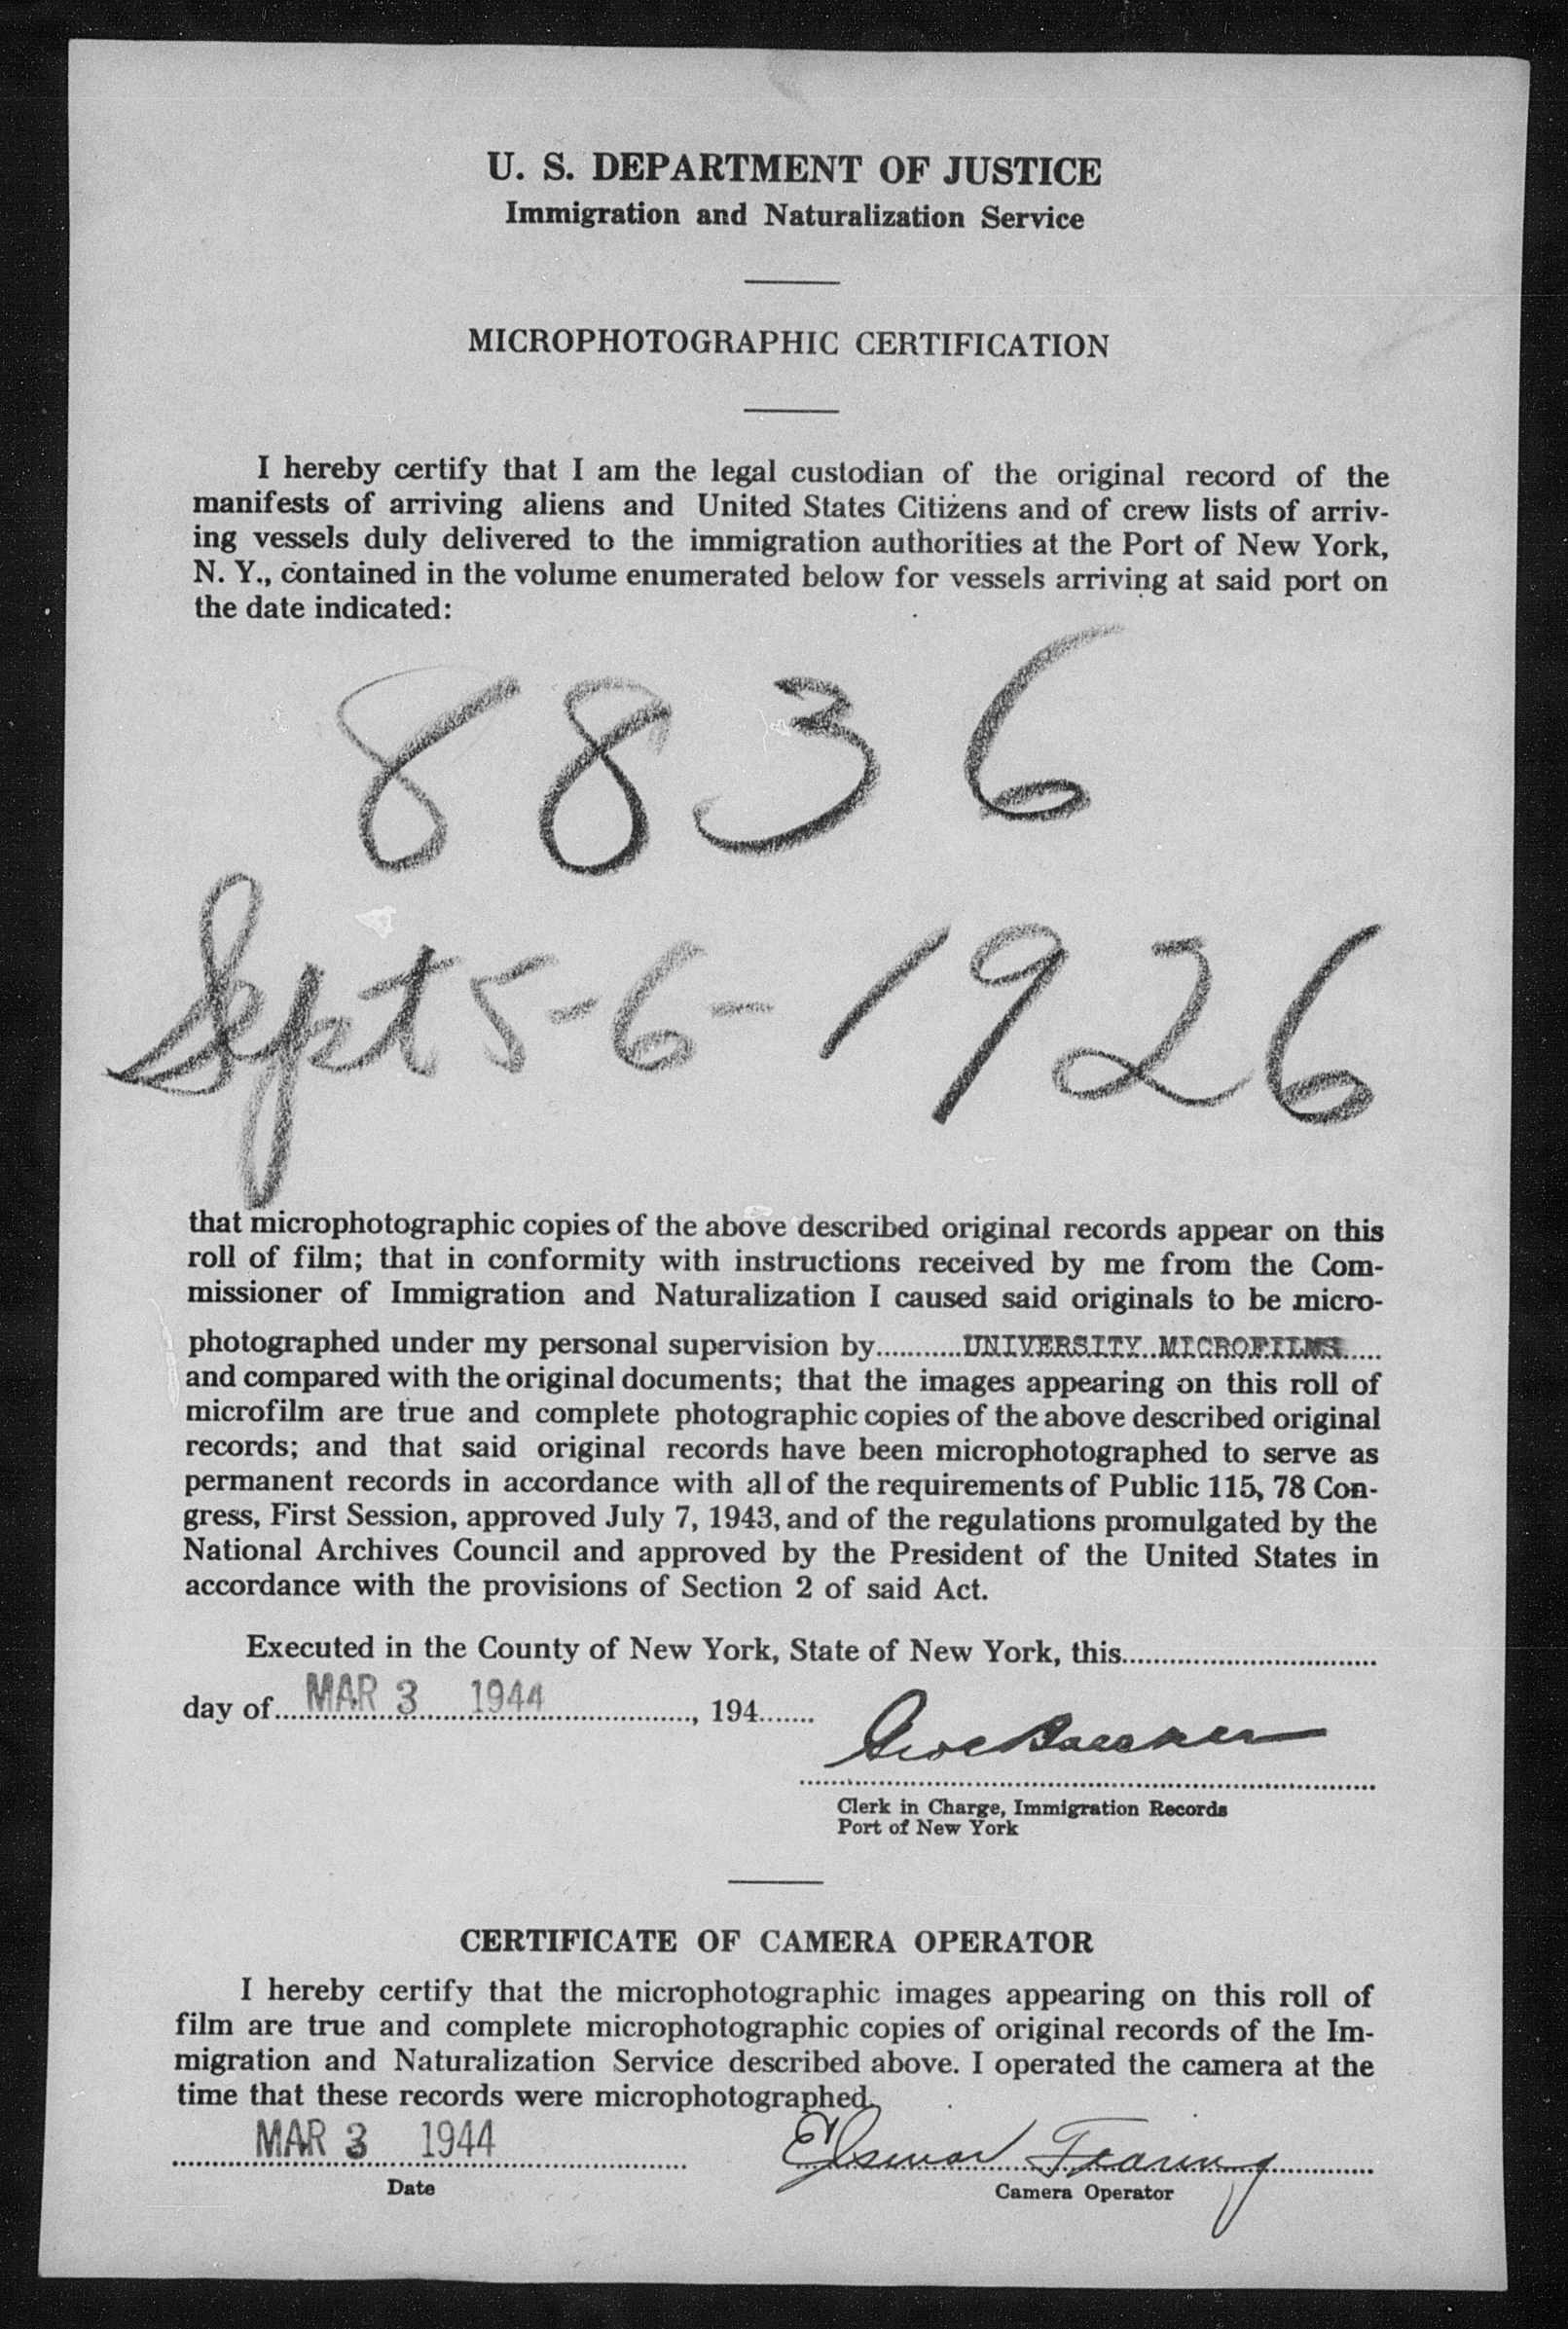 U. S. DEPARTMENT OF JUSTICE
Immigration and Naturalization Service
MICROPHOTOGRAPHIC CERTIFICATION
I hereby certify that I am the legal custodian of the original record of the
manifests of arriving aliens and United States Citizens and of crew lists of arriv-
ing vessels duly delivered to the immigration authorities at the Port of New York,
N. Y., contained in the volume enumerated below for vessels arriving at said port on
the date indicated:
8836
Sept 5-6-1926
that microphotographic copies of the above described original records appear on this
roll of film; that in conformity with instructions received by me from the Com-
missioner of Immigration and Naturalization I caused said originals to be micro-
photographed under my personal supervision by...........UNIVERSITY MICROFILMS.....
and compared with the original documents; that the images appearing on this roll of
microfilm are true and complete photographic copies of the above described original
records; and that said original records have been microphotographed to serve as
permanent records in accordance with all of the requirements of Public 115, 78 Con-
gress, First Session, approved July 7, 1943, and of the regulations promulgated by the
National Archives Council and approved by the President of the United States in
accordance with the provisions of Section 2 of said Act.
Executed in the County of New York, State of New York, this................................
day of.....MAR 3 1944..................., 194.......
Clerk in Charge, Immigration Records
Port of New York
CERTIFICATE OF CAMERA OPERATOR
I hereby certify that the microphotographic images appearing on this roll of
film are true and complete microphotographic copies of original records of the Im-
migration and Naturalization Service described above. I operated the camera at the
time that these records were microphotographed.
MAR 3 1944
Date
Camera Operator